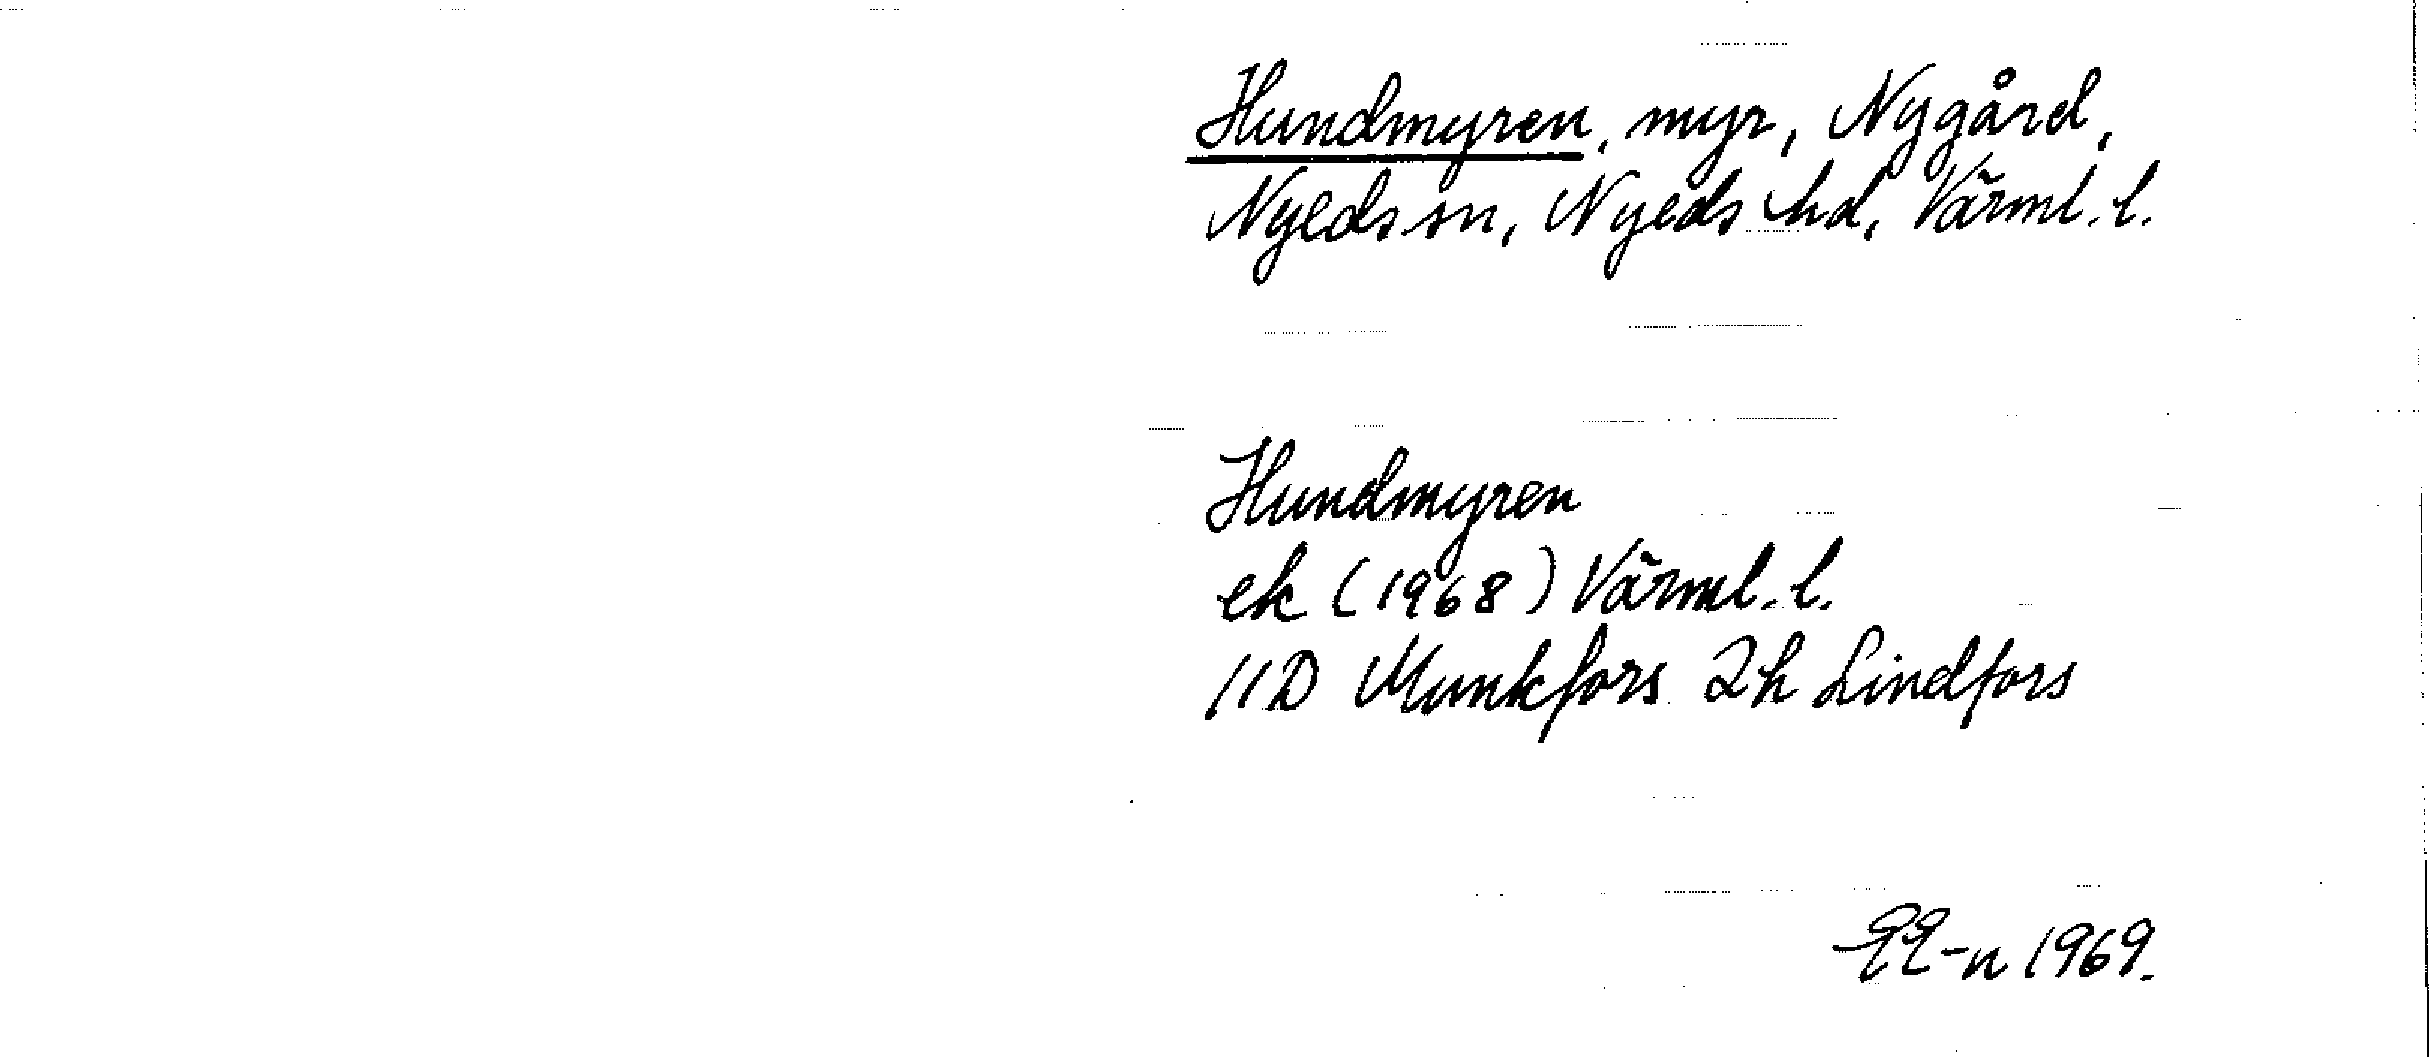 Hundmyren, myr, Nygård,
Nyeds sn, Nyeds hd, Värml. l.
Hundmyren
ek (1968) Värml. l.
11D Munkfors 2h Lindfors
1969.